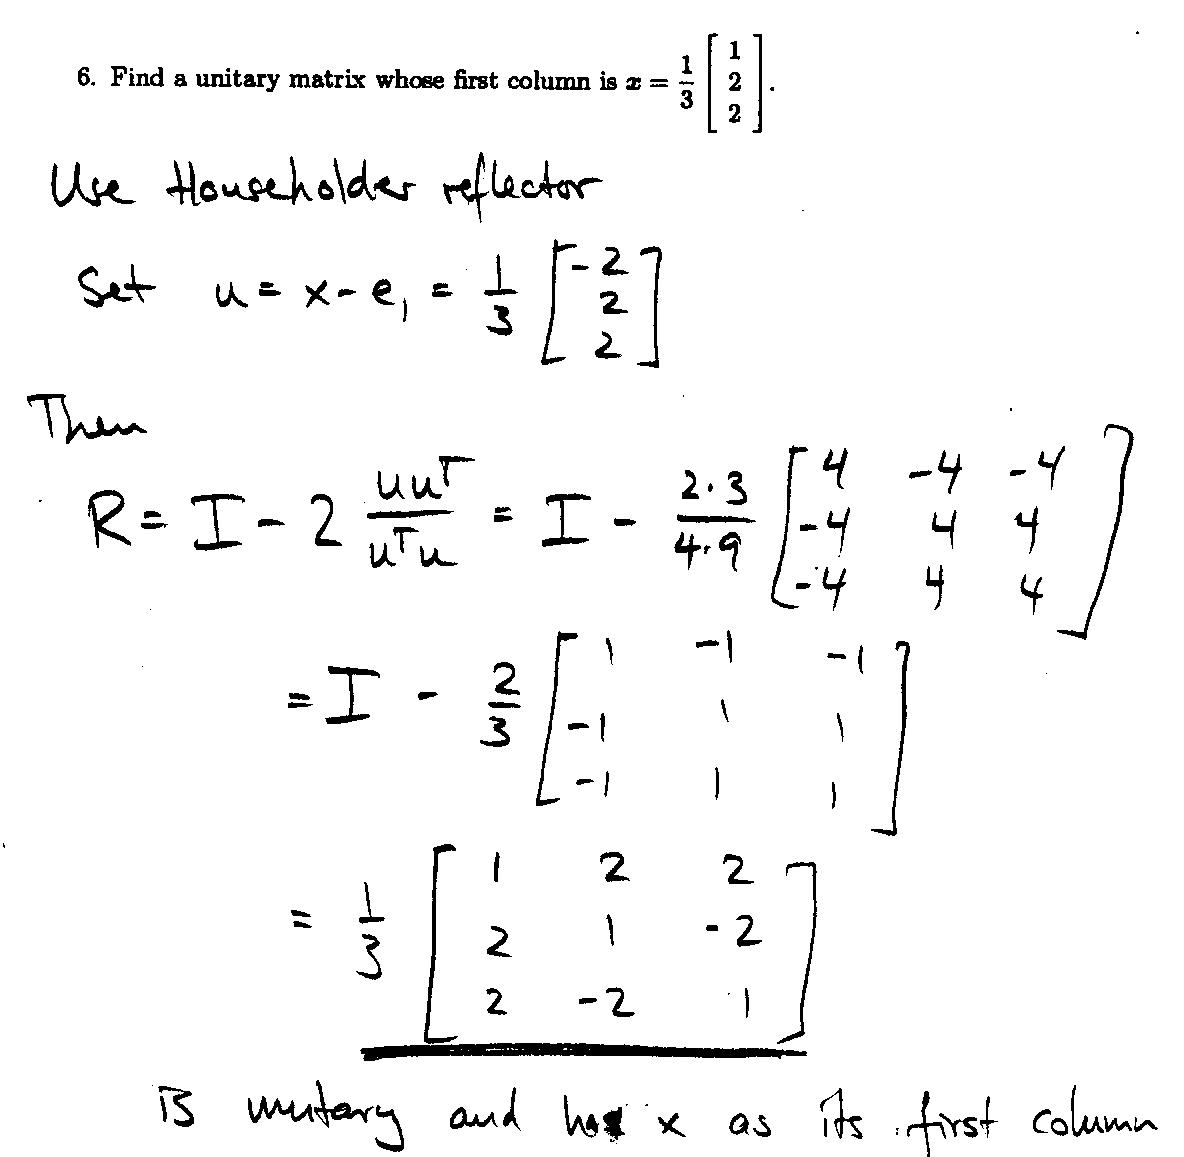 6. Find a unitary matrix whose first column is x = 1/3 [1; 2; 2].
Use Householder reflector
Set u = x - e₁ = 1/3 [-2; 2; 2]
Then
R = I - 2 uuᵀ/uᵀu = I - 2·3/4·9 [4 -4 -4; -4 4 4; -4 4 4]
= I - 2/3 [1 -1 -1; -1 1 1; -1 1 1]
= 1/3 [1 2 2; 2 1 -2; 2 -2 1]
is unitary and has x as its first column